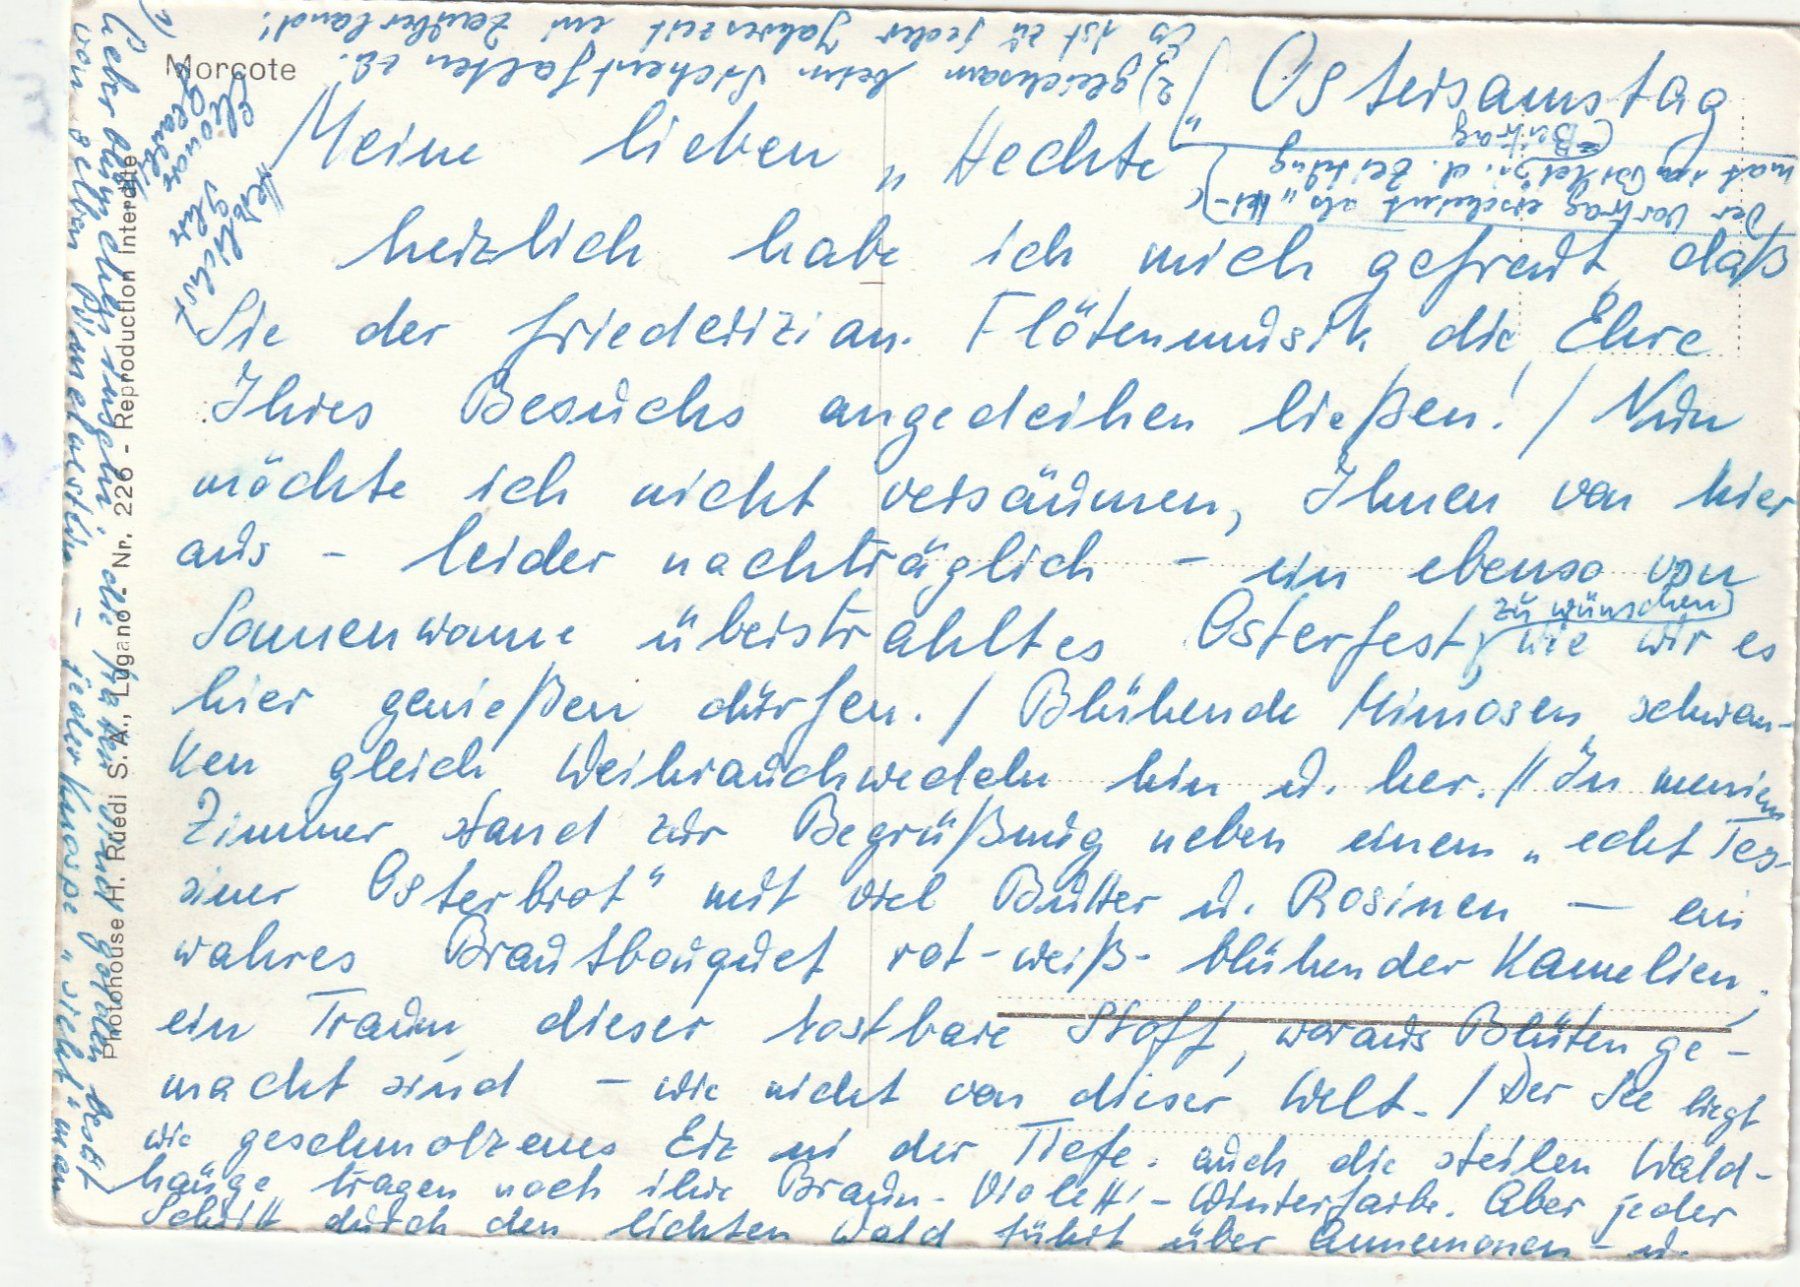 Morcote
Ostersamstag
Meine lieben „Hechte"
herzlich habe ich mich gefreut, daß
Sie der friederizian. Flötenmusik die Ehre
Ihres Besuchs angedeihen ließen! / Nun
möchte ich nicht versäumen, Ihnen von hier
aus - leider nachträglich - ein ebenso von
zu wünschen
Sonnenwonne überstrahltes Osterfest, wie wir es
hier genießen dürfen. / Blühende Mimosen schwan-
ken gleich Weihrauchwedeln hin u. her. // In meinem
Zimmer stand zur Begrüßung neben einem „echt Tes-
siner Osterbrot" mit viel Butter u. Rosinen — ein
wahres Brautbouquet rot-weiß-blühender Kamelien,
ein Traum dieser kostbare Stoff, woraus Blüten ge-
macht sind - wie nicht von dieser Welt. / Der See liegt
wie geschmolzenes Erz in der Tiefe. auch die steilen Wald-
hänge tragen noch ihre Braun-Violett-Winterfarbe. Aber jeder
Schritt durch den lichten Wald führt über Annemonen- u.
Leberblümchen
von gelben Primelnestern - jeder Knospe „sieht" man
2) gleichsam beim Sichentfalten zu.
Es ist zu jeder Jahreszeit ein Zauberland!
Herzlichst
Der Vortrag erscheint als
i. d. Zeitung
(= Beitrag
Photohouse H. Rüedi S. A., Lugano - Nr. 226 - Reproduction interdite